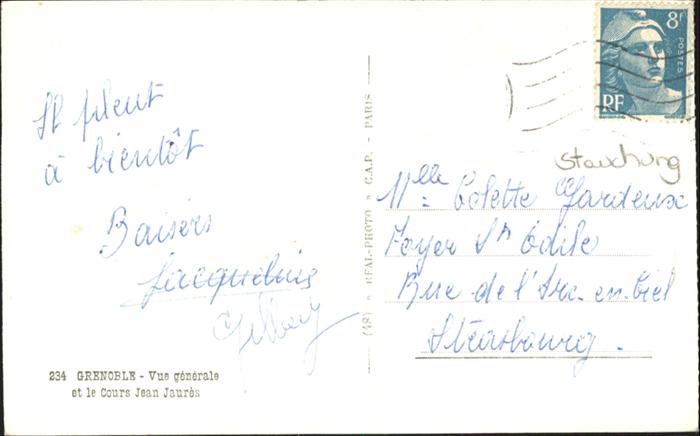 Il pleut
à bientôt
Baisers
Jacqueline
234 GRENOBLE - Vue générale
et le Cours Jean Jaurès
(48) " REAL-PHOTO " C.A.P. - PARIS
8f
POSTES
RF
Stauchung
Mlle Colette Jardeux
Foyer Ste Odile
Rue de l'Arc-en-Ciel
Strasbourg.